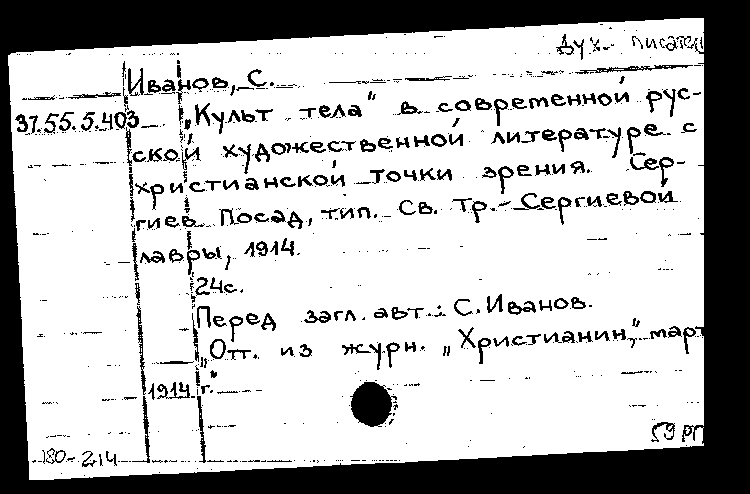 Дух. писател
Иванов, С.
37.55.5.403 „Культ тела“ в современной рус-
ской художественной литературе с
христианской точки зрения. Сер-
гиев Посад, тип. Св. Тр.-Сергиевой
лавры, 1914.
24с.
Перед загл. авт.: С. Иванов.
„Отт. из журн. „Христианин“, март
1914 г.“
59 РП
180-214